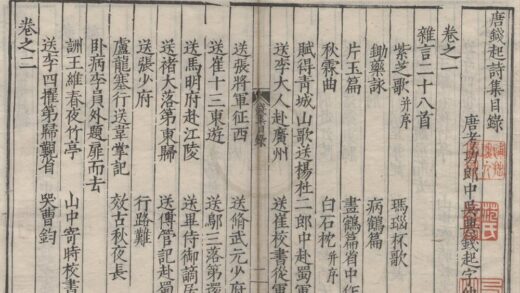 唐錢起詩集目錄
唐考功郎中吳興錢起字仲
卷之一
雜言二十八首
紫芝歌并序 瑪瑙杯歌
鋤藥詠 病鶴篇
片玉篇 畫鶴篇省中作
秋霖曲 白石枕并序
賦得青城山歌送楊杜二郎中赴蜀軍
送李大人赴廣州 送崔校書從軍
目錄 二
送張將軍征西 送脩武元少府
送崔十三東遊 送鄔三落第還
送馬明府赴江陵 送畢侍御謫居
送褚大落第東歸 送傅管記赴蜀
送張少府 行路難
盧龍塞行送韋掌記 效古秋夜長
臥病李員外題扉而去
詶王維春夜竹亭 山中寄時校書
送李四擢第歸覲省 哭曹鈞
卷之二